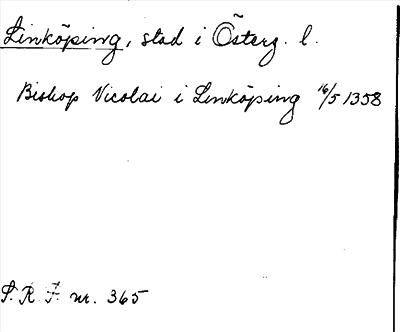 Linköping, stad i Österg. l.
Biskop Nicolai i Linköping 16/5 1358
S. R. P. nr. 365